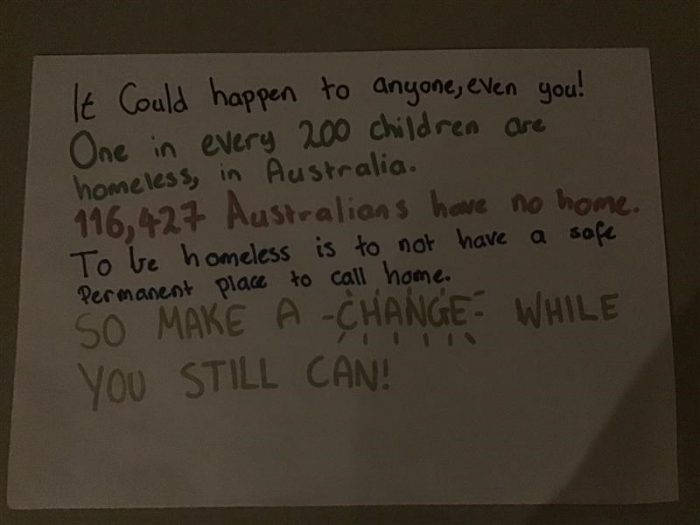 It Could happen to anyone, even you!
One in every 200 children are
homeless, in Australia.
116,427 Australians have no home.
To be homeless is to not have a safe
Permanent place to call home.
SO MAKE A -CHANGE- WHILE
YOU STILL CAN!